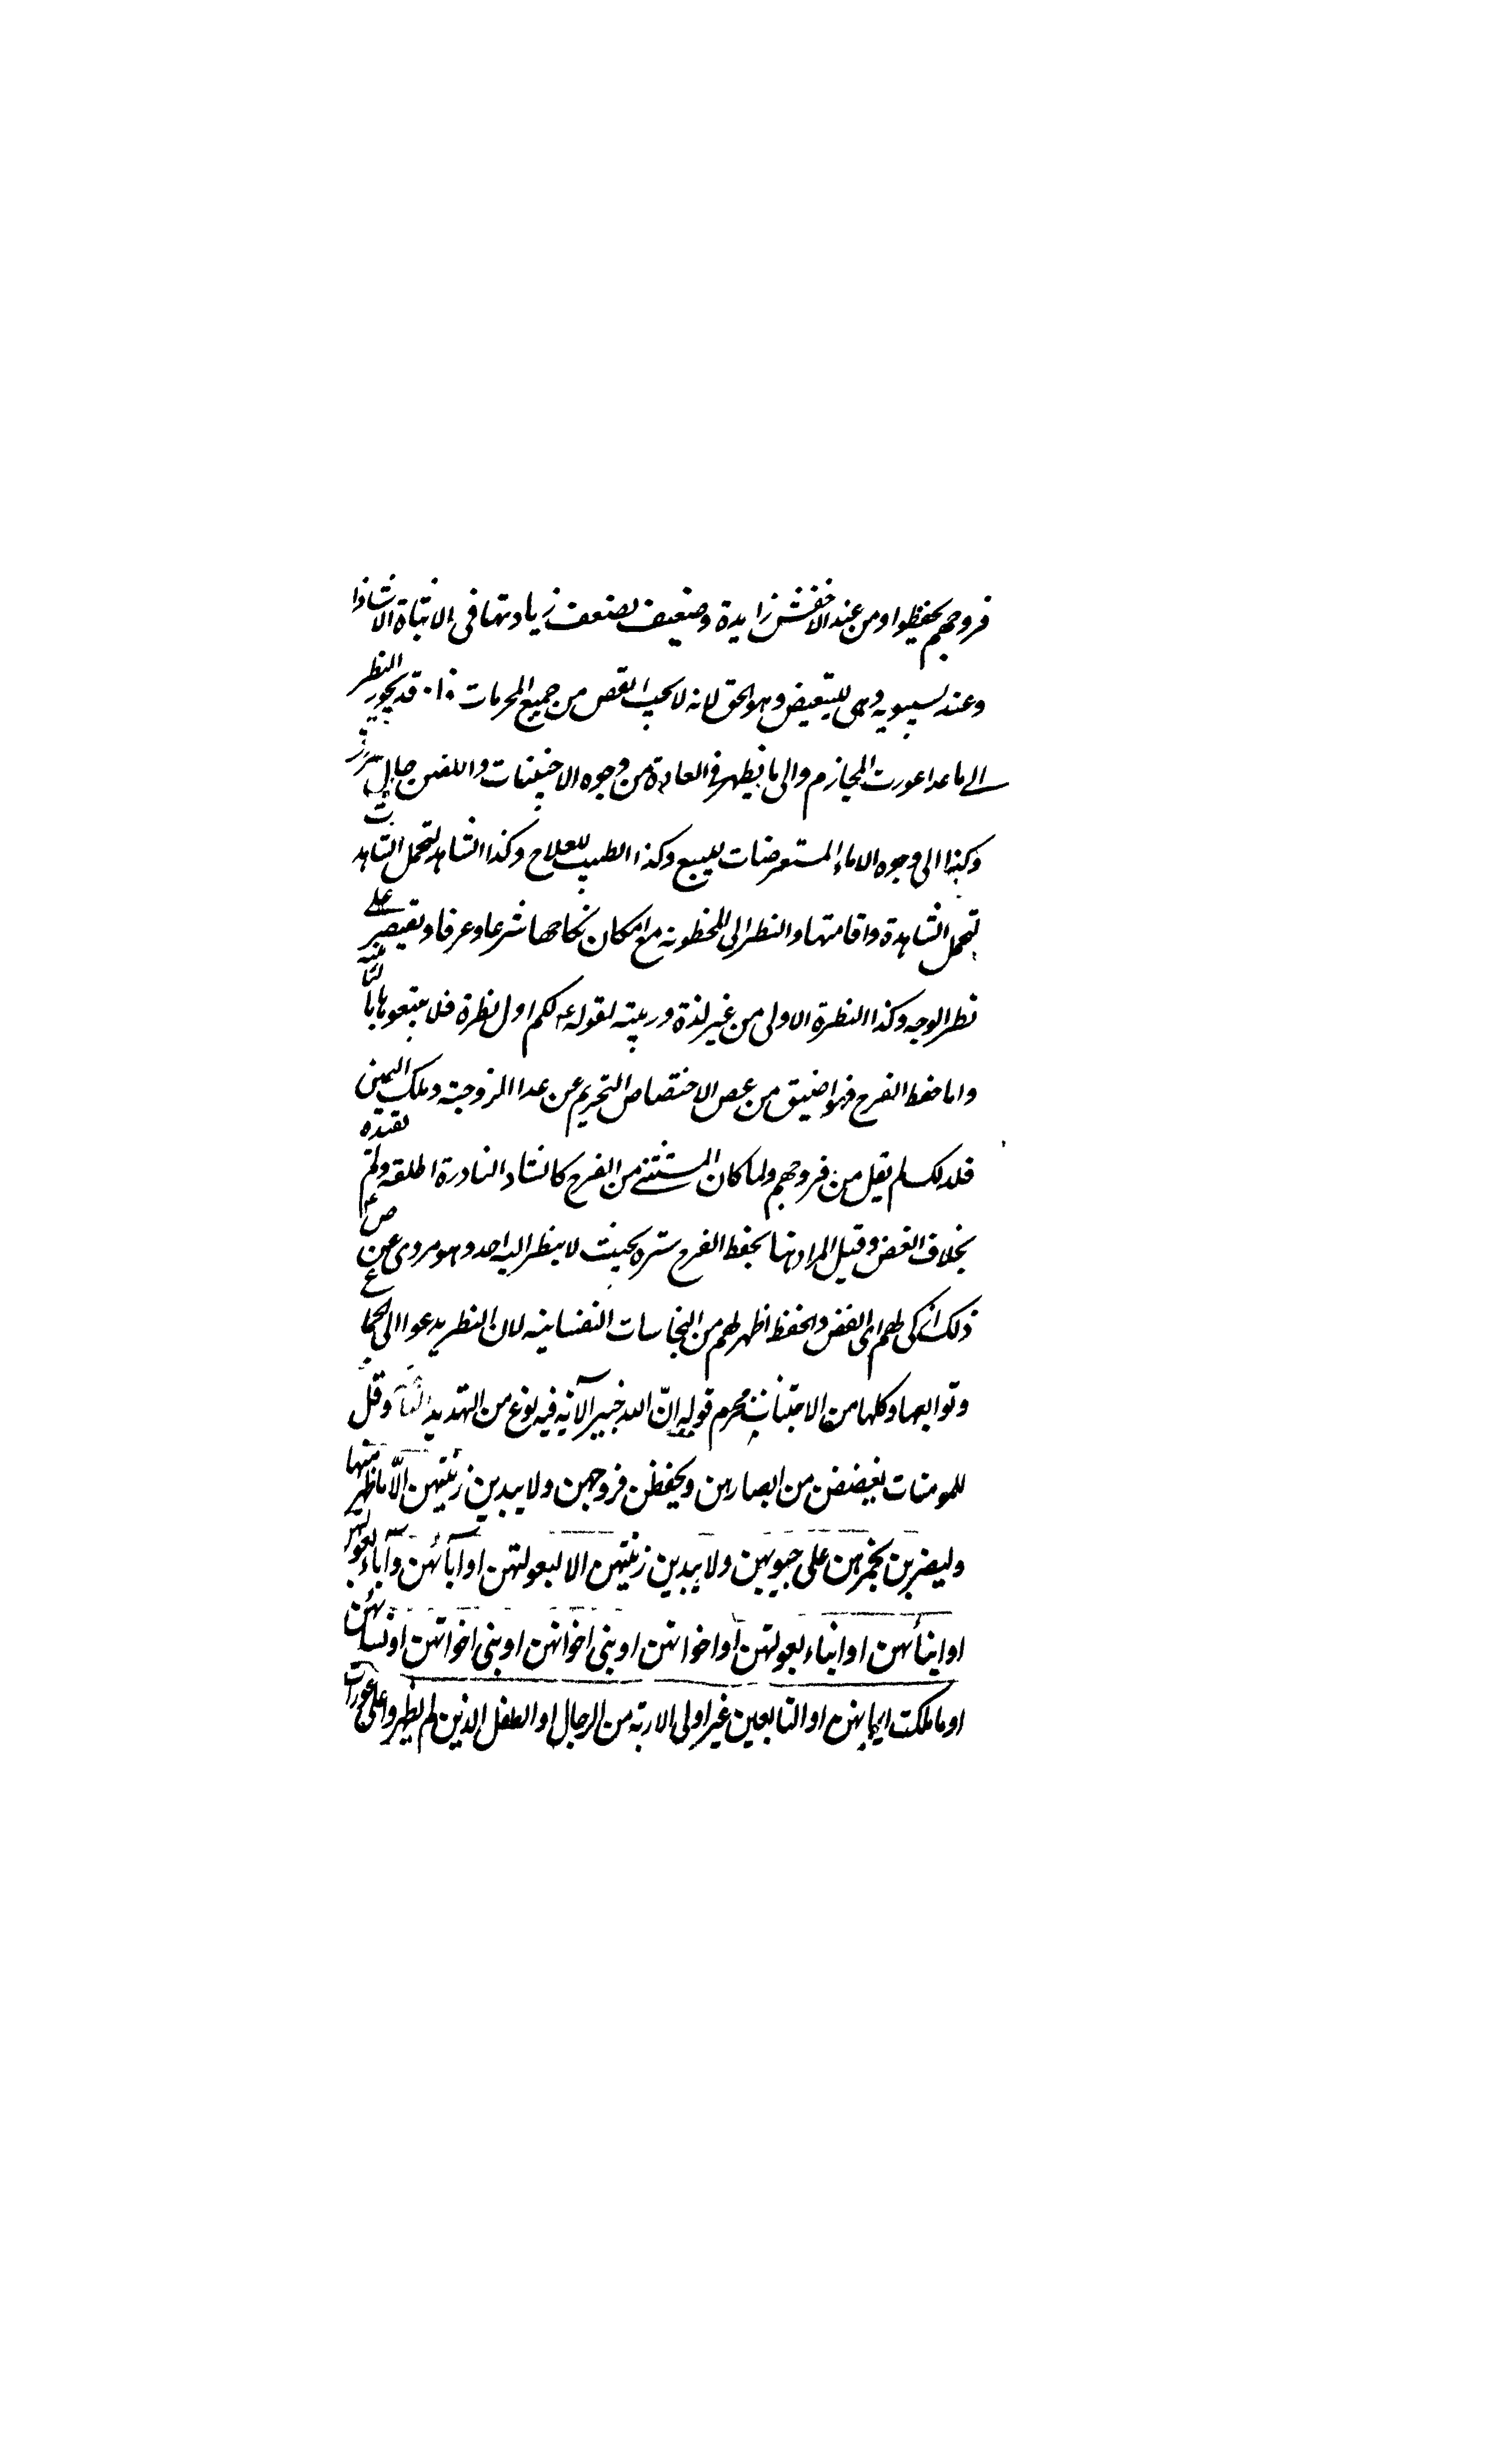 فروجهم يحفظوا ومن عند الاخفش زايدة وضعيف لضعف زيادتها فى الاثبات الا شاذا
وعند سيبويه وهى للتبعيض وهو الحق لانه لا يجب الغض من جميع المحرمات اذ قد يجوز النظر
الى ما عدا عورت المحارم والى ما يظهر فى العادة من وجوه الاجنبيات واللفين
وكذا الى وجوه الاماء المستعرضات للبيع وكذا الطبيب للعلاج وكذا الشاهد لتحمل الشاهد
لتحمل الشاهدة واقامتها والنظر الى المخطوبه مع امكان نكاحها شرعا وعرفا ويقتصر على
نظر الوجه وكذا النظرة الاولى من غير لذة وريبته لقوله ع لكم اول نظرة فلا يتبعوها بالثانيه
واما حفظ الفرج فهو اضيق من غص الاختصاص التحريم عن عدا الزوجته وملك اليمين
فلذلك لم يقل من فروجهم ولما كان المستثنى من الفرج كالشاد النادرة اطلقه ولم يقيده
بخلاف الغض وقيل المراد بها بحفظ الفرج ستره بحيث لا ينظر اليه احد وهو مروى عن ص ع
ذلك ازكى لهم اى الغض والحفظ اظهر لهم من النجاسات النفسانيه لان النظر يدعوا الى الجماع
وتوابعها وكلها من الاجنبات محرم قوله ان الله خبير الآية فيه نوع من التهديد وقل
للمومنات يغضضن من ابصارهن ويحفظن فروجهن ولا يبدين زينتهن الا ما ظهر منها
وليضربن بخمرهن على جيوبهن ولا يبدين زينتهن الا لبعولتهن او آبآئهن وآباء بعولتهن
او ابنائهن او ابناء بعولتهن او اخوانهن او بنى اخوانهن او بنى اخواتهن او نسائهن
او ما ملكت ايمانهن او التابعين غير اولى الاربة من الرجال او الطفل الذين لم يظهروا على عورات